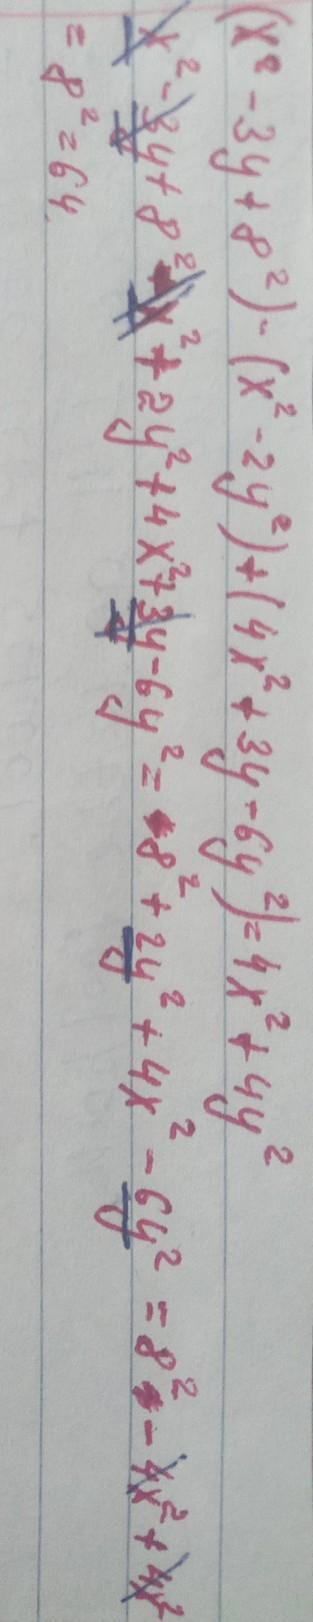 (x² - 3y + 8²) - (x² - 2y²) + (4x² + 3y - 6y²) = 4x² + 4y²
x² - 3y + 8² - x² + 2y² + 4x² + 3y - 6y² = 8² + 2y² + 4x² - 6y² = 8² - 4x² + 4x²
= 8² = 64